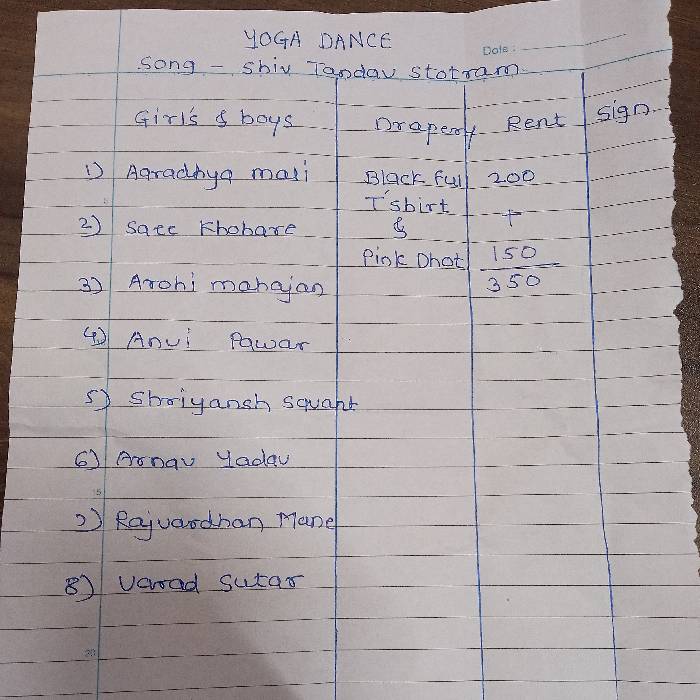 YOGA DANCE
Date :
Song - Shiv Tandav Stotram
Girl's & boys Drapery Rent Sign
1) Aaradhya mali Black full 200
T'shirt +
2) Saee Khobare &
Pink Dhot 150
3) Arohi mahajan 350
4) Anvi Pawar
5) Shriyansh Sawant
6) Arnav Yadav
7) Rajvardhan Mane
8) Varad Sutar
20